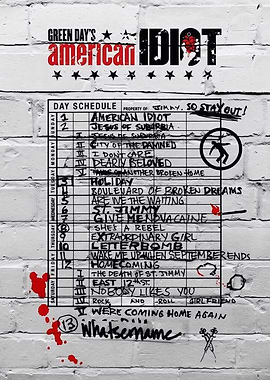 GREEN DAY'S
american IDIOT
DAY SCHEDULE PROPERTY OF: JIMMY. SO STAY OUT!
1 AMERICAN IDIOT
2 JESUS OF SUBURBIA
I JESUS OF SUBURBIA
II CITY OF THE DAMNED
III I DONT CARE
IV DEARLY BELOVED
V TALES OF ANOTHER BROKEN HOME
3 HOLIDAY
4 BOULEVARD OF BROKEN DREAMS
5 ARE WE THE WAITING
6 ST. JIMMY
7 GIVE ME NOVACAINE
8 SHE'S A REBEL
9 EXTRAORDINARY GIRL
10 LETTERBOMB
11 WAKE ME UP WHEN SEPTEMBER ENDS
12 HOMECOMING
I THE DEATH OF ST. JIMMY
II EAST 12TH ST.
III NOBODY LIKES YOU
IV ROCK AND ROLL GIRLFRIEND
V WERE COMING HOME AGAIN
13 Whatsername